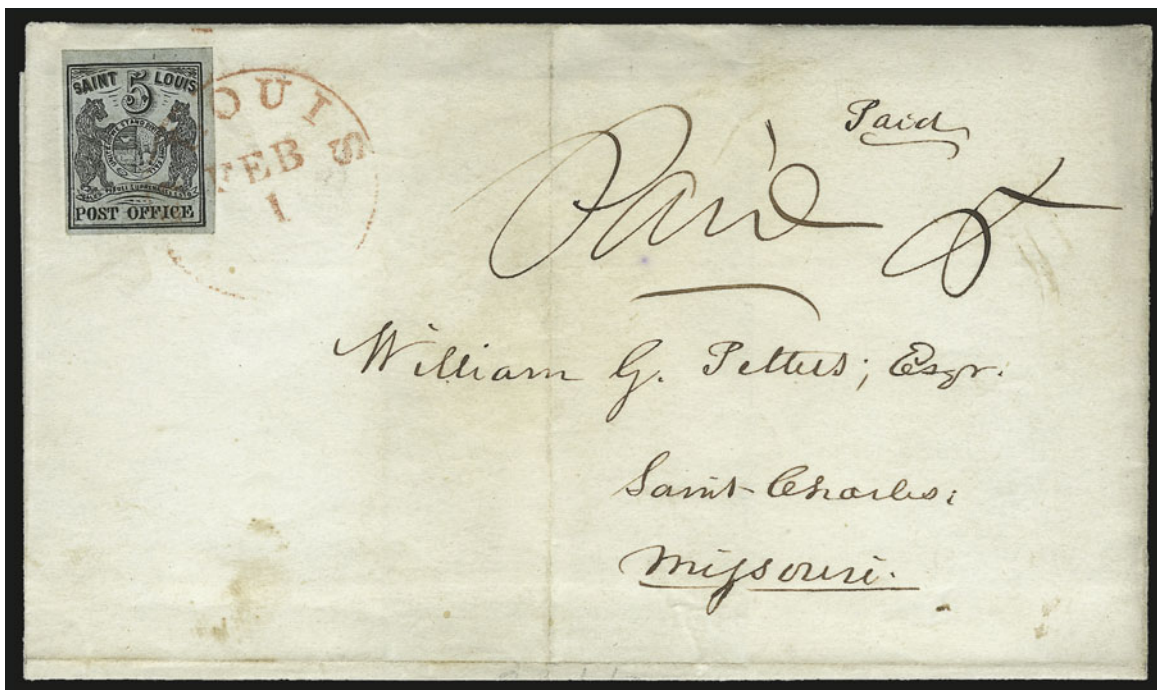 SAINT 5 LOUIS
POST OFFICE
LOUIS
FEB
1
Paid
Paid 5
William G. Pettus; Esqr.
Saint Charles;
Missouri.